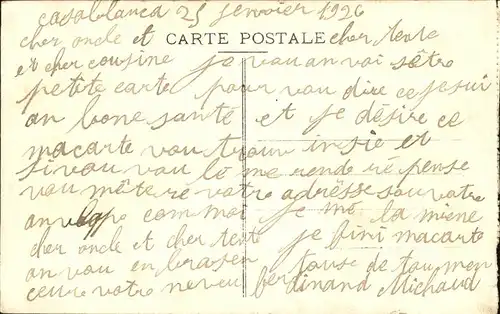 casablanca 25 fenvoier 1926
cher oncle et CARTE POSTALE cher tente
et cher cousine je vou anvoi sêtre
petite carte pour vou dire ce jesui
an bone santé et je désire ce
macarte vou trouv et
sivou vou lé me rende ré pense
vou mête re votre adrèsse sou votre
commoi je mé la miene
cher oncle et cher tente je fini macarte
an vou en brasen touse de tou mon
ceure votre neveu ferdinand Michaud